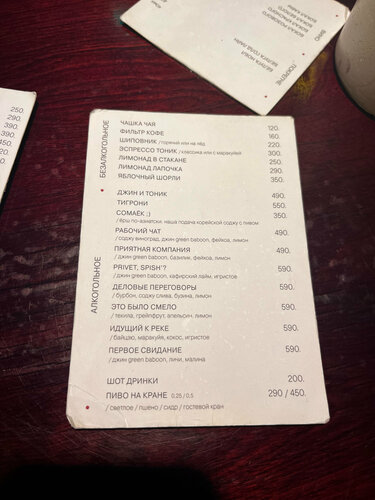 БЕЗАЛКОГОЛЬНОЕ
ЧАШКА ЧАЯ 120.
ФИЛЬТР КОФЕ 160.
ШИПОВНИК / горячий или на лёд 220.
ЭСПРЕССО ТОНИК / классика или с маракуйей 300.
ЛИМОНАД В СТАКАНЕ 250.
ЛИМОНАД ЛАПОЧКА 290.
ЯБЛОЧНЫЙ ШОРЛИ 350.
АЛКОГОЛЬНОЕ
ДЖИН И ТОНИК 490.
ТИГРОНИ 550.
СОМАЁК ;) 350.
/ ёрш по-азиатски. наша подача корейской соджу с пивом
РАБОЧИЙ ЧАТ 490.
/ соджу виноград, джин green baboon, фейхоа, лимон
ПРИЯТНАЯ КОМПАНИЯ 490.
/ джин green baboon, базилик, фейхоа, лимон
PRIVET, SPISH'? 590.
/ джин green baboon, кафирский лайм, игристое
ДЕЛОВЫЕ ПЕРЕГОВОРЫ 590.
/ бурбон, соджу слива, бузина, лимон
ЭТО БЫЛО СМЕЛО 590.
/ текила, грейпфрут, апельсин, лимон
ИДУЩИЙ К РЕКЕ 590.
/ байцзю, маракуйя, кокос, игристое
ПЕРВОЕ СВИДАНИЕ 590.
/ джин green baboon, личи, малина
ШОТ ДРИНКИ 200.
ПИВО НА КРАНЕ 0,25 / 0,5 290 / 450.
/ светлое / пшено / сидр / гостевой кран
250.
290.
390.
390.
ВИНО
БОКАЛ РОЗОВОГО
БОКАЛ БЕЛОГО
БОКАЛ КРАСНОГО
БОКАЛ КАВЫ
ПОКРЕПЧЕ